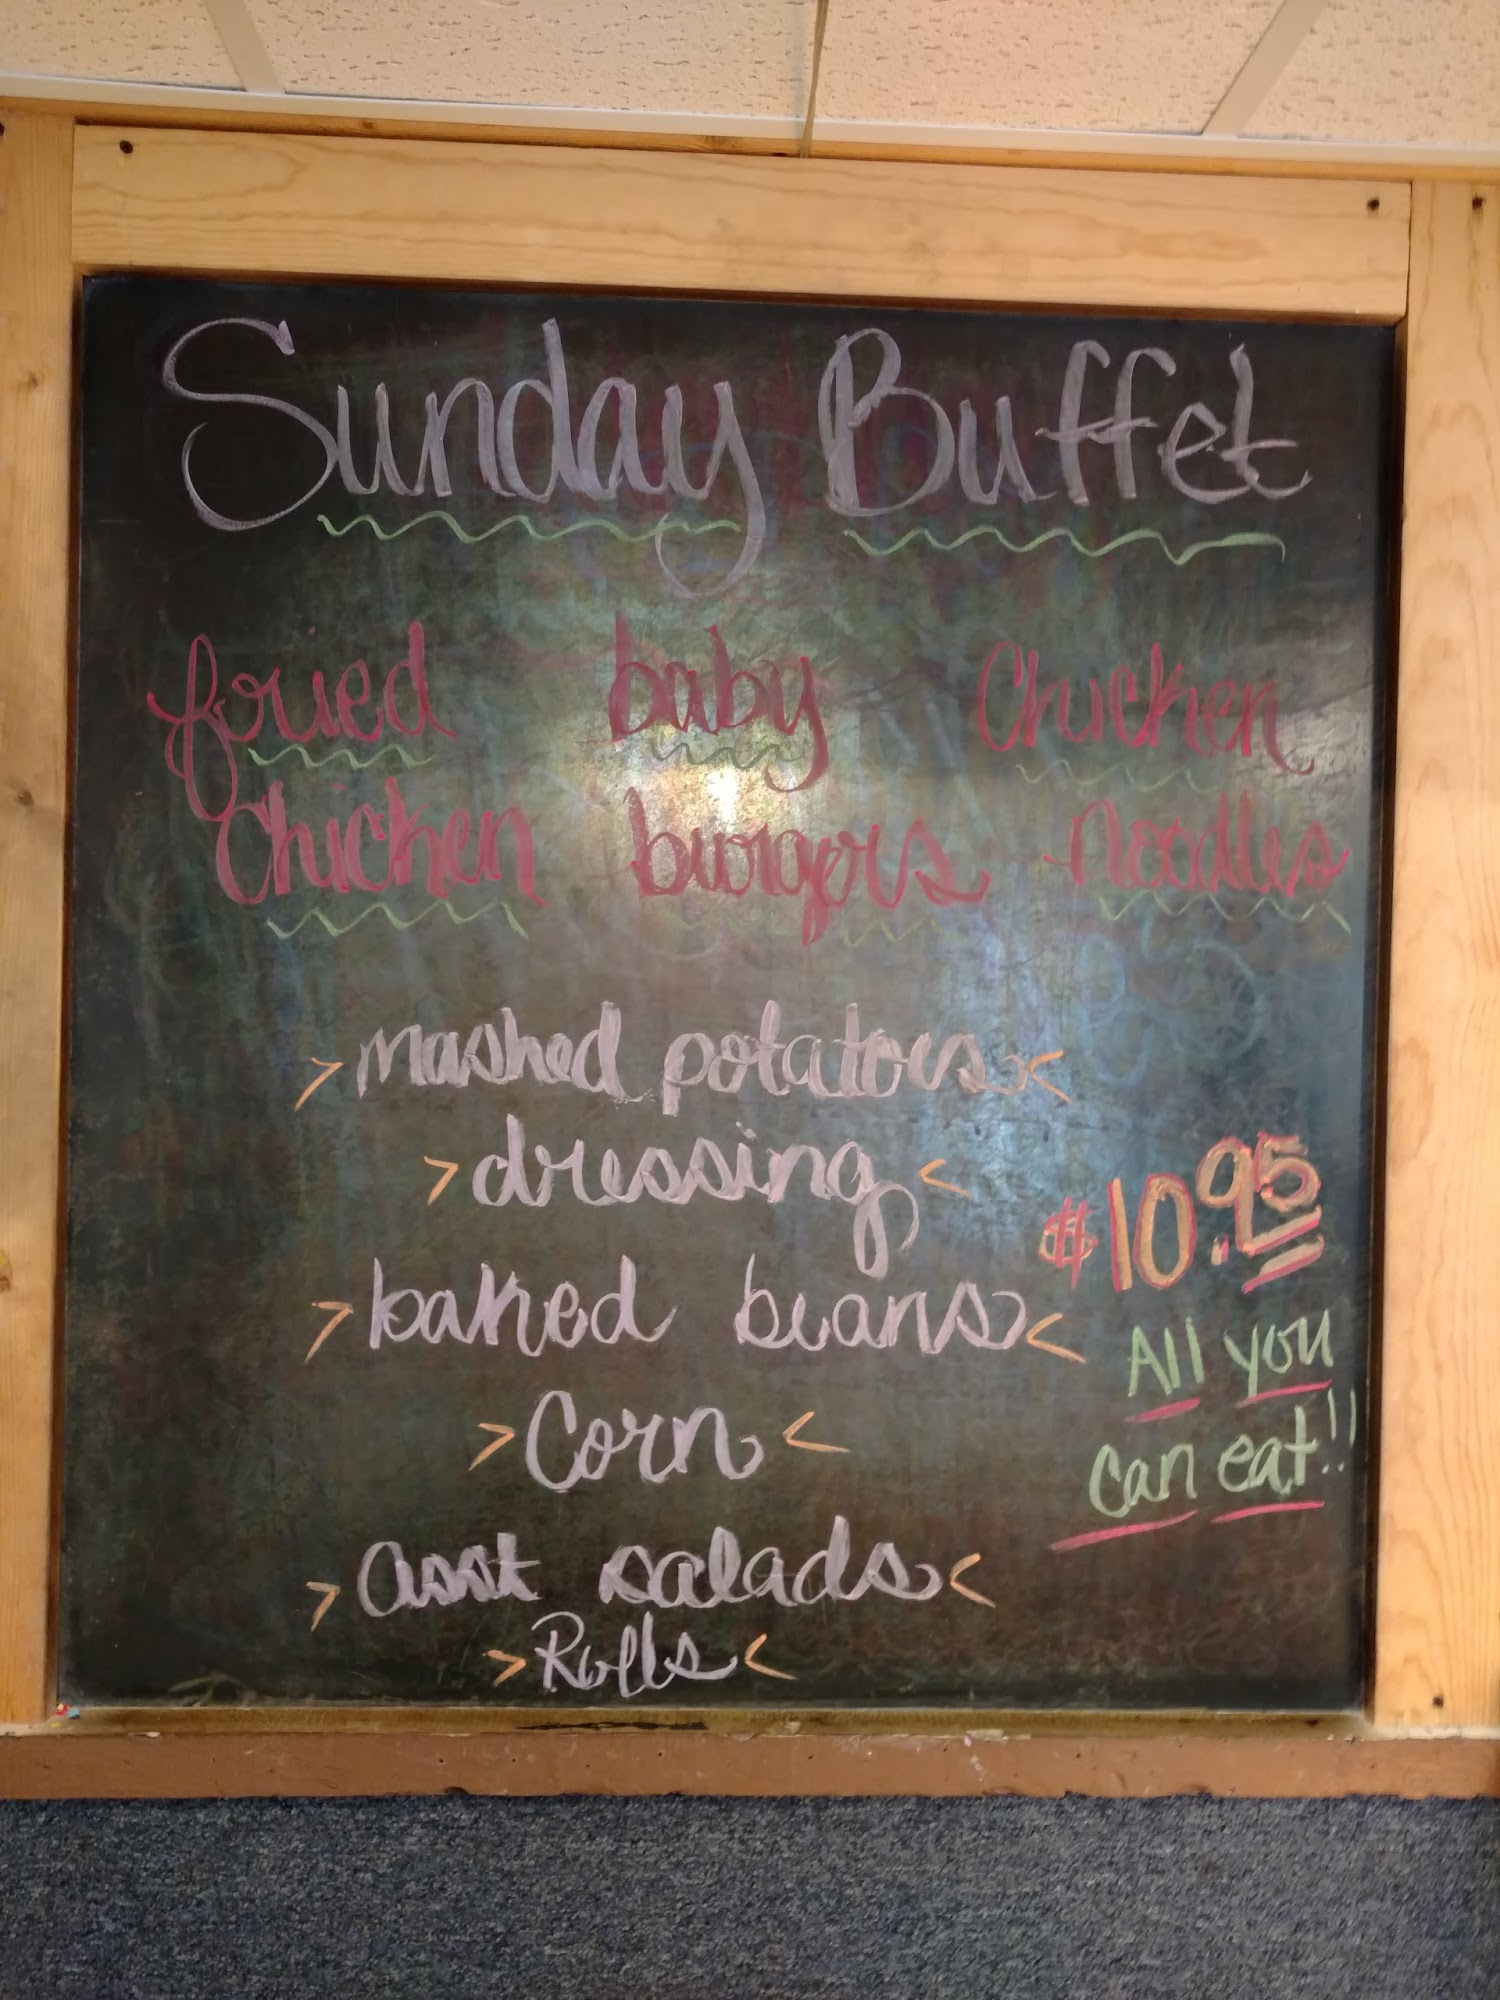 Sunday Buffet
fried baby Chicken
Chicken burgers noodles
>mashed potatoes<
>dressing<
>baked beans<
>Corn<
>asst salads<
>Rolls<
$10.95
All you
can eat!!